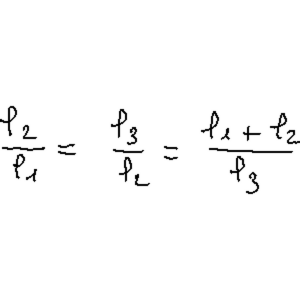 l₂/l₁ = l₃/l₂ = (l₁ + l₂)/l₃